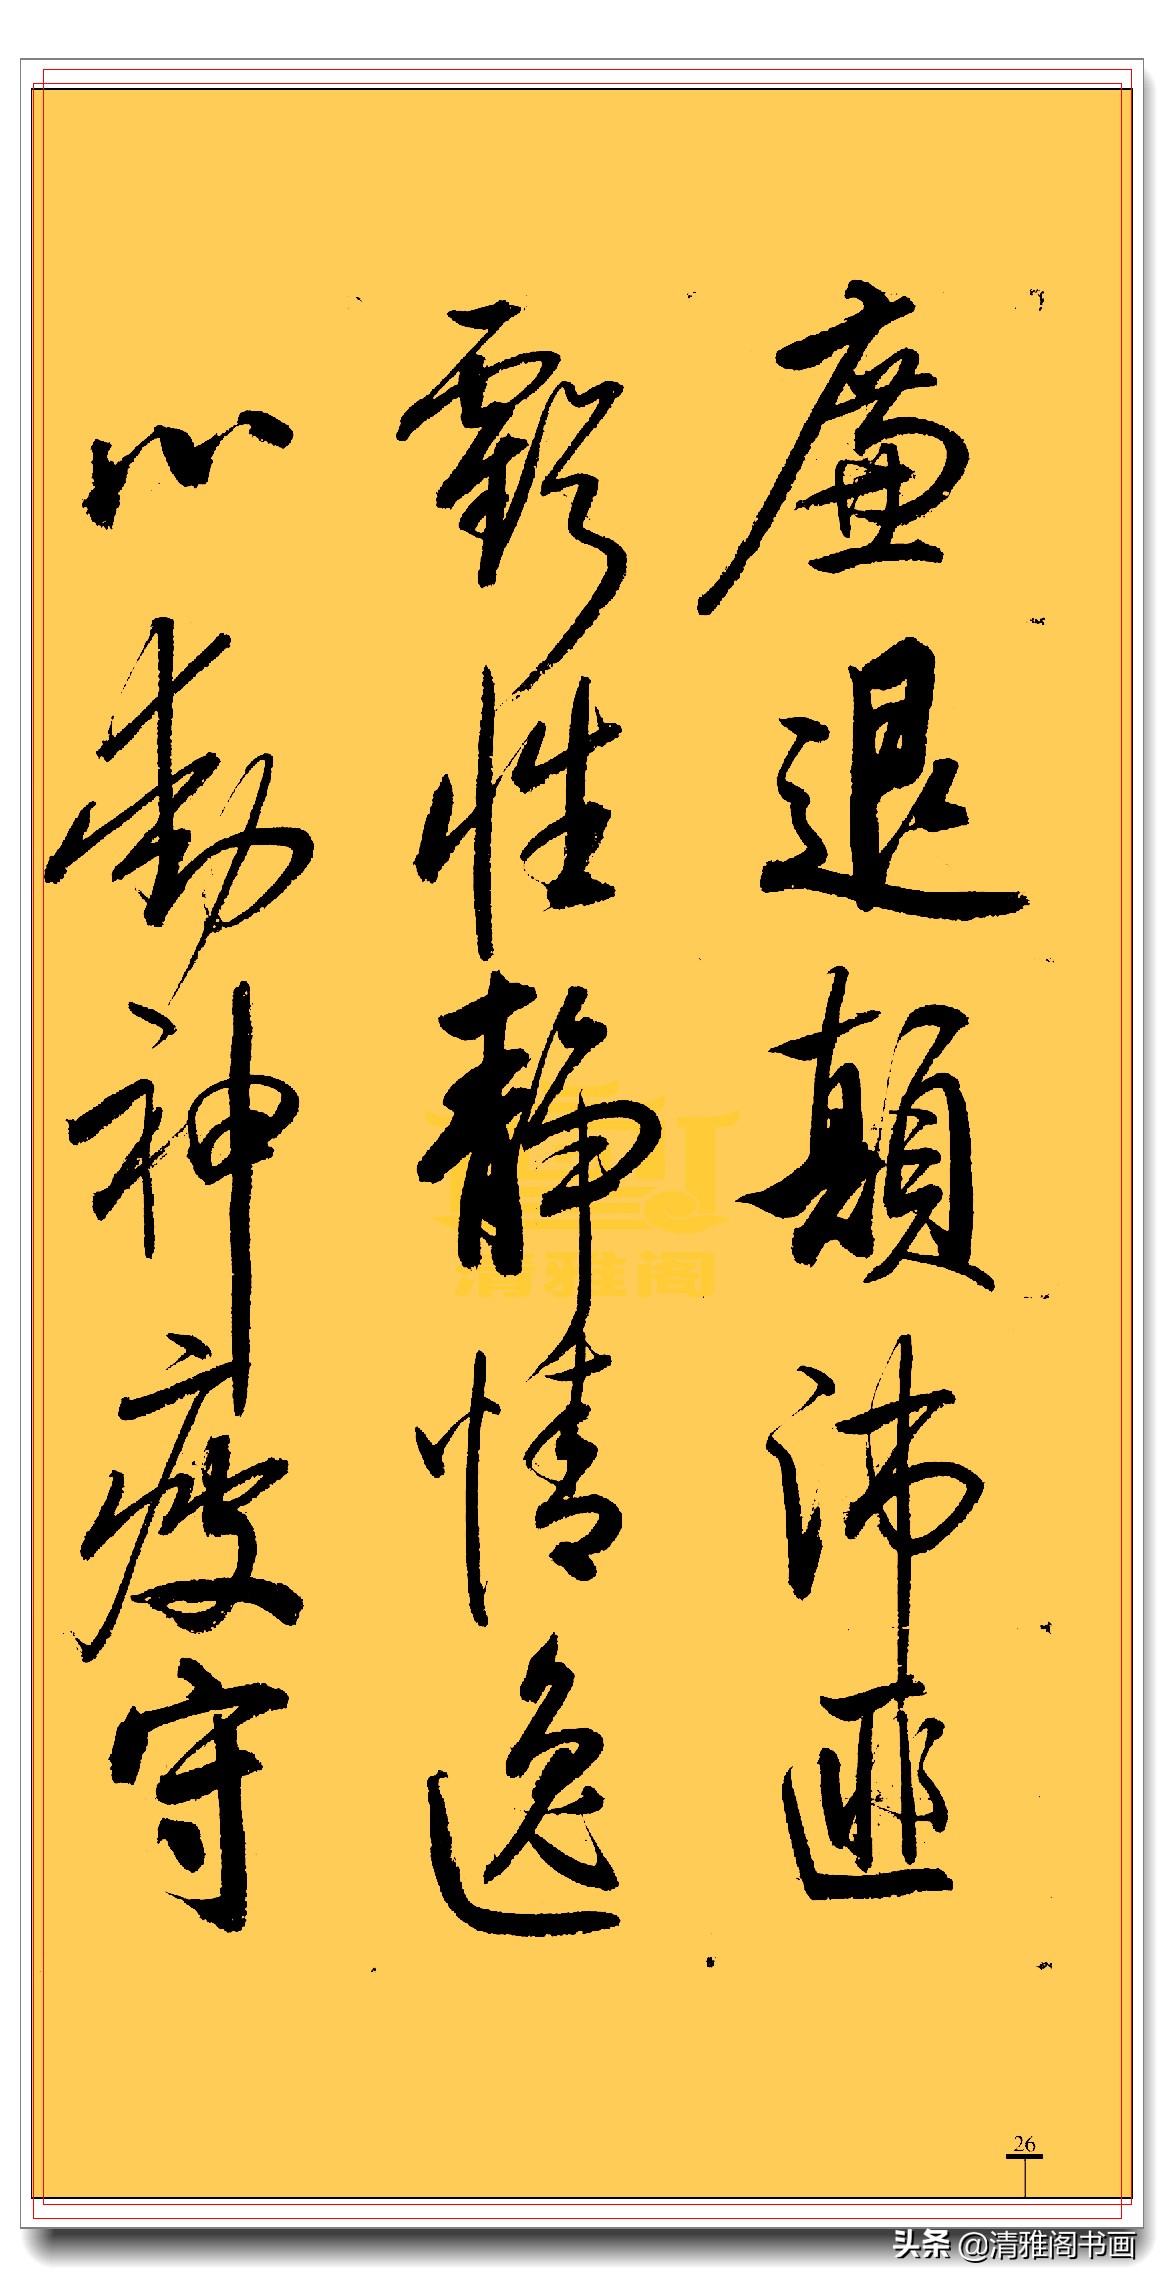 廉退顛沛匪
虧性靜情逸
心動神疲守
清雅阁
26
头条 @清雅阁书画